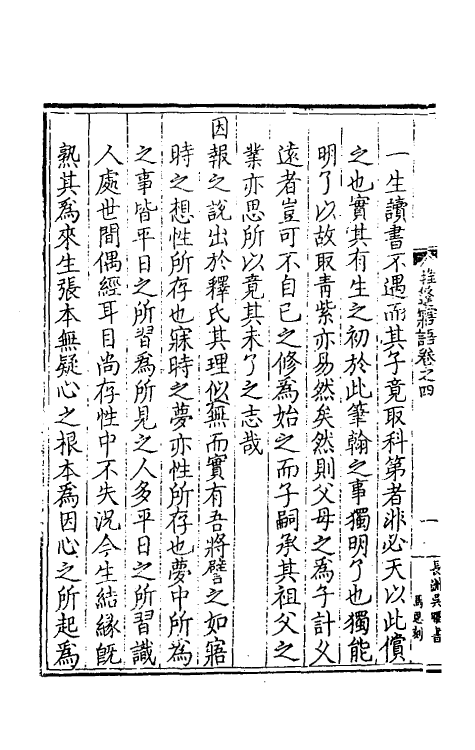 一生讀書不遇而其子竟取科第者非必天以此償
之也實其有生之初於此筆翰之事獨明了也獨能
明了以故取青紫亦易然矣然則父母之為子計乂
遠者豈可不自已之修為始之而子嗣承其祖父之
業亦思所以竟其未了之志哉
因報之說出於釋氏其理似無而實有吾將譬之如寤
時之想性所存也寐時之夢亦性所存也夢中所為
之事皆平日之所習為所見之人多平日之所習識
人處世間偶經耳目尚存性中不失況今生結緣既
熟其為來生張本無疑心之根本為因心之所起為
寤語卷之四
一
長洲吳曜書